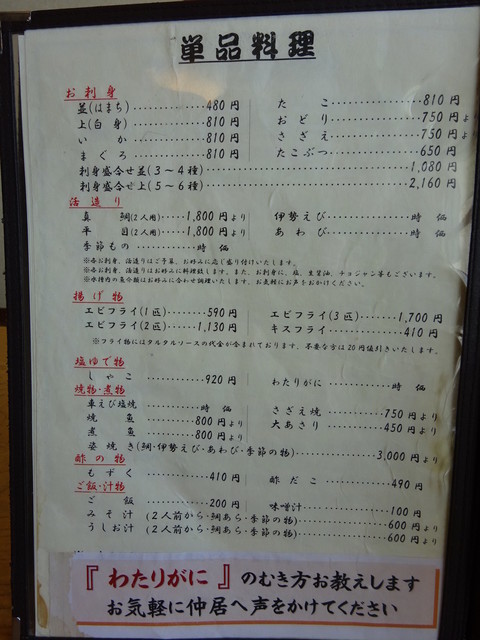 単品料理
お刺身
並(はまち)‥‥‥‥‥480円 たこ‥‥‥‥‥810円
上(白身)‥‥‥‥‥810円 おどり‥‥‥‥‥750円よ
いか‥‥‥‥‥810円 さざえ‥‥‥‥‥750円よ
まぐろ‥‥‥‥‥810円 たこぶつ‥‥‥‥‥650円
刺身盛合せ並(3〜4種)‥‥‥‥‥1,080円
刺身盛合せ上(5〜6種)‥‥‥‥‥2,160円
活造り
真鯛(2人用)‥‥1,800円より 伊勢えび‥‥‥‥‥時価
平目(2人用)‥‥1,800円より あわび‥‥‥‥‥時価
季節もの‥‥‥‥‥時価
※各お刺身、活造りはご予算、お好みに応じ盛り付けいたします。
※各お刺身、活造りはお好みに料理致します。また、お刺身に、塩、生醤油、チョジャン等もございます。
※水槽内の魚介類はお好みに合わせ調理いたします。お気軽にお声をおかけください。
揚げ物
エビフライ(1匹)‥‥‥‥590円 エビフライ(3匹)‥‥‥‥1,700円
エビフライ(2匹)‥‥‥‥1,130円 キスフライ‥‥‥‥‥410円
※フライ物にはタルタルソースの代金が含まれております。不要な方は20円値引きいたします。
塩ゆで物
しゃこ‥‥‥‥‥920円 わたりがに‥‥‥‥‥時価
焼物・煮物
車えび塩焼‥‥‥‥‥時価 さざえ焼‥‥‥‥‥750円より
焼魚‥‥‥‥‥800円より 大あさり‥‥‥‥‥450円より
煮魚‥‥‥‥‥800円より
姿焼き(鯛・伊勢えび・あわび・季節の物)‥‥‥‥‥3,000円より
酢の物
もずく‥‥‥‥‥410円 酢だこ‥‥‥‥‥490円
ご飯・汁物
ご飯‥‥‥‥‥200円 味噌汁‥‥‥‥‥100円
みそ汁(2人前から・鯛あら・季節の物)‥‥‥‥‥600円より
うしお汁(2人前から・鯛あら・季節の物)‥‥‥‥‥600円より
『わたりがに』のむき方お教えします
お気軽に仲居へ声をかけてください